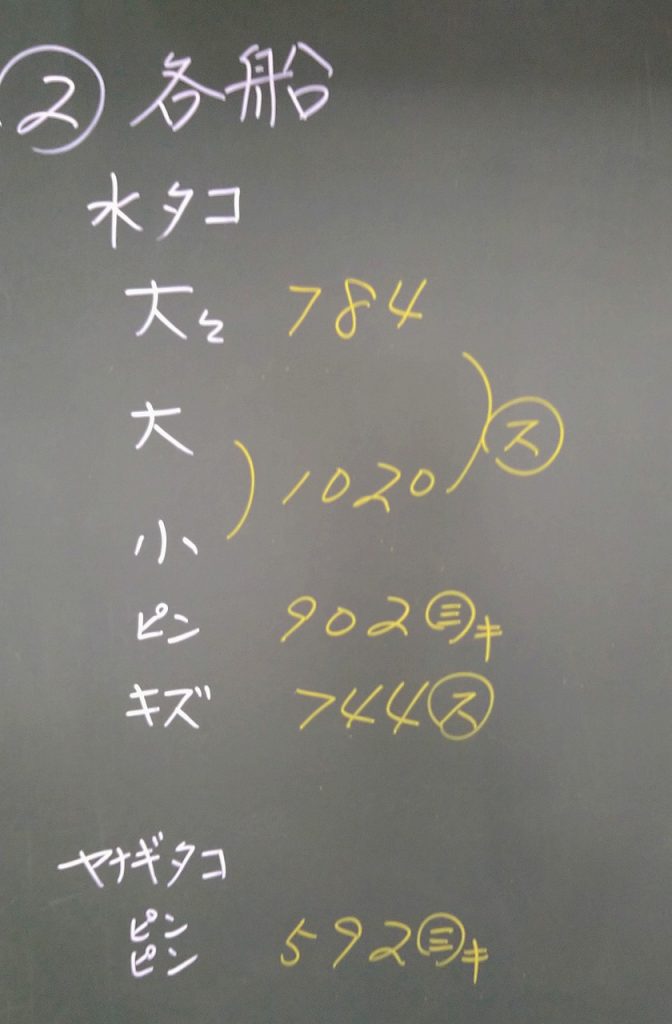 ② 各船
水タコ
大々 784
大
小 1020 ㋜
ピン 902 ㋯キ
キズ 744 ㋜
ヤナギタコ
ピン
ピン 592 ㋯キ